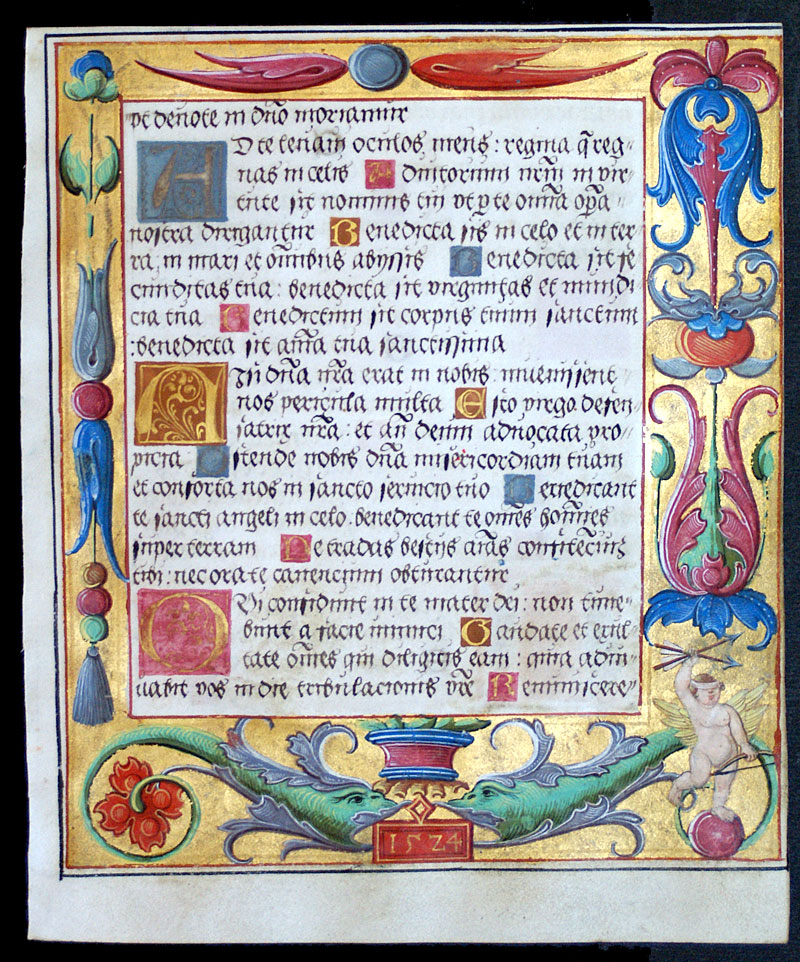 ut devote in dno moriamur
AD te levam oculos meos : regina q reg-
nas in celis Adiutorium nrm in vir-
tute sit nominis tui ut p te omnia opa
nostra dirigantur Benedicta sis in celo et in ter
ra, in mari et omnibus abyssis Benedicta sit fe
cunditas tua : benedicta sit virginitas et mundi
cia tua Benedictum sit corpus tuum sanctum
: benedicta sit anima tua sanctissima
NIsi dna nra erat in nobis : invenissent
nos pericula multa Esto virgo defen
satrix nra : et an deum advocata pro-
picia Ostende nobis dna misericordiam tuam
et conforta nos in sancto servicio tuo Benedicant
te sancti angeli in celo . benedicant te omes homines
super terram Ne tradas bestiis aias confitecium
tibi : nec ora te canencium obturantur
QUi confidunt in te mater dei : non time-
bunt a facie inimici Gaudete et exul-
tate omes qui diligitis eam : quia adiu-
vabit vos in die tribulacionis vre Reminicere-
1524